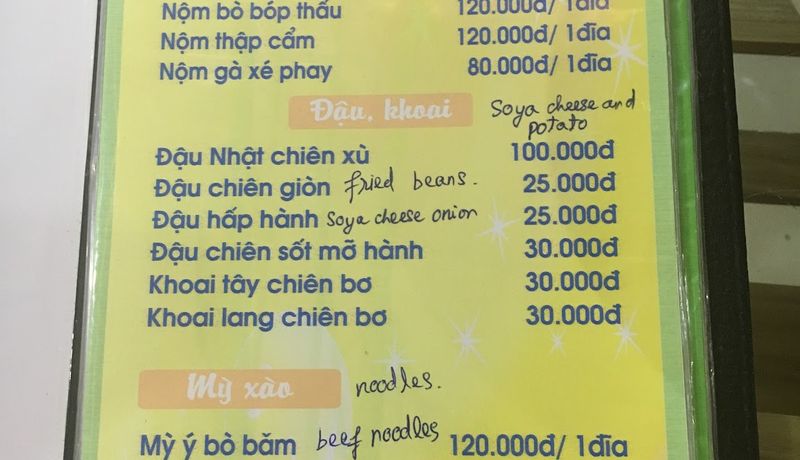 Nộm bò bóp thấu 120.000đ/ 1đĩa
Nộm thập cẩm 120.000đ/ 1đĩa
Nộm gà xé phay 80.000đ/ 1đĩa
Đậu, khoai Soya cheese and potato
Đậu Nhật chiên xù 100.000đ
Đậu chiên giòn fried beans. 25.000đ
Đậu hấp hành Soya cheese onion 25.000đ
Đậu chiên sốt mỡ hành 30.000đ
Khoai tây chiên bơ 30.000đ
Khoai lang chiên bơ 30.000đ
Mỳ xào noodles.
Mỳ ý bò băm beef noodles 120.000đ/ 1đĩa